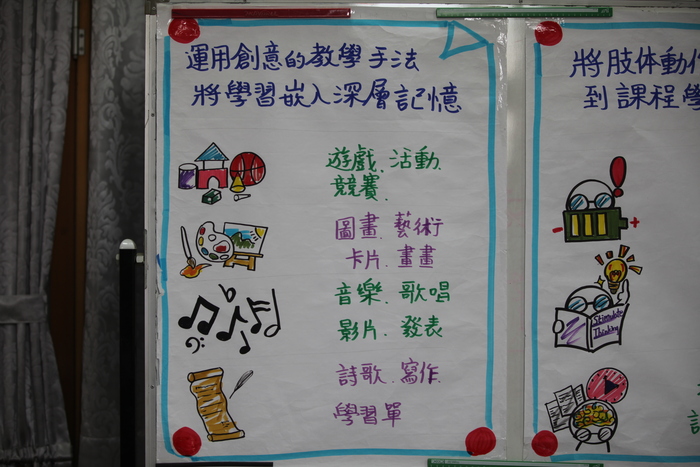 運用創意的教學手法
將學習嵌入深層記憶
遊戲、活動、
競賽、
圖畫、藝術
卡片、畫畫
音樂、歌唱
影片、發表
詩歌、寫作、
學習單
將肢体動作
到課程學
Stimulate
Thinking